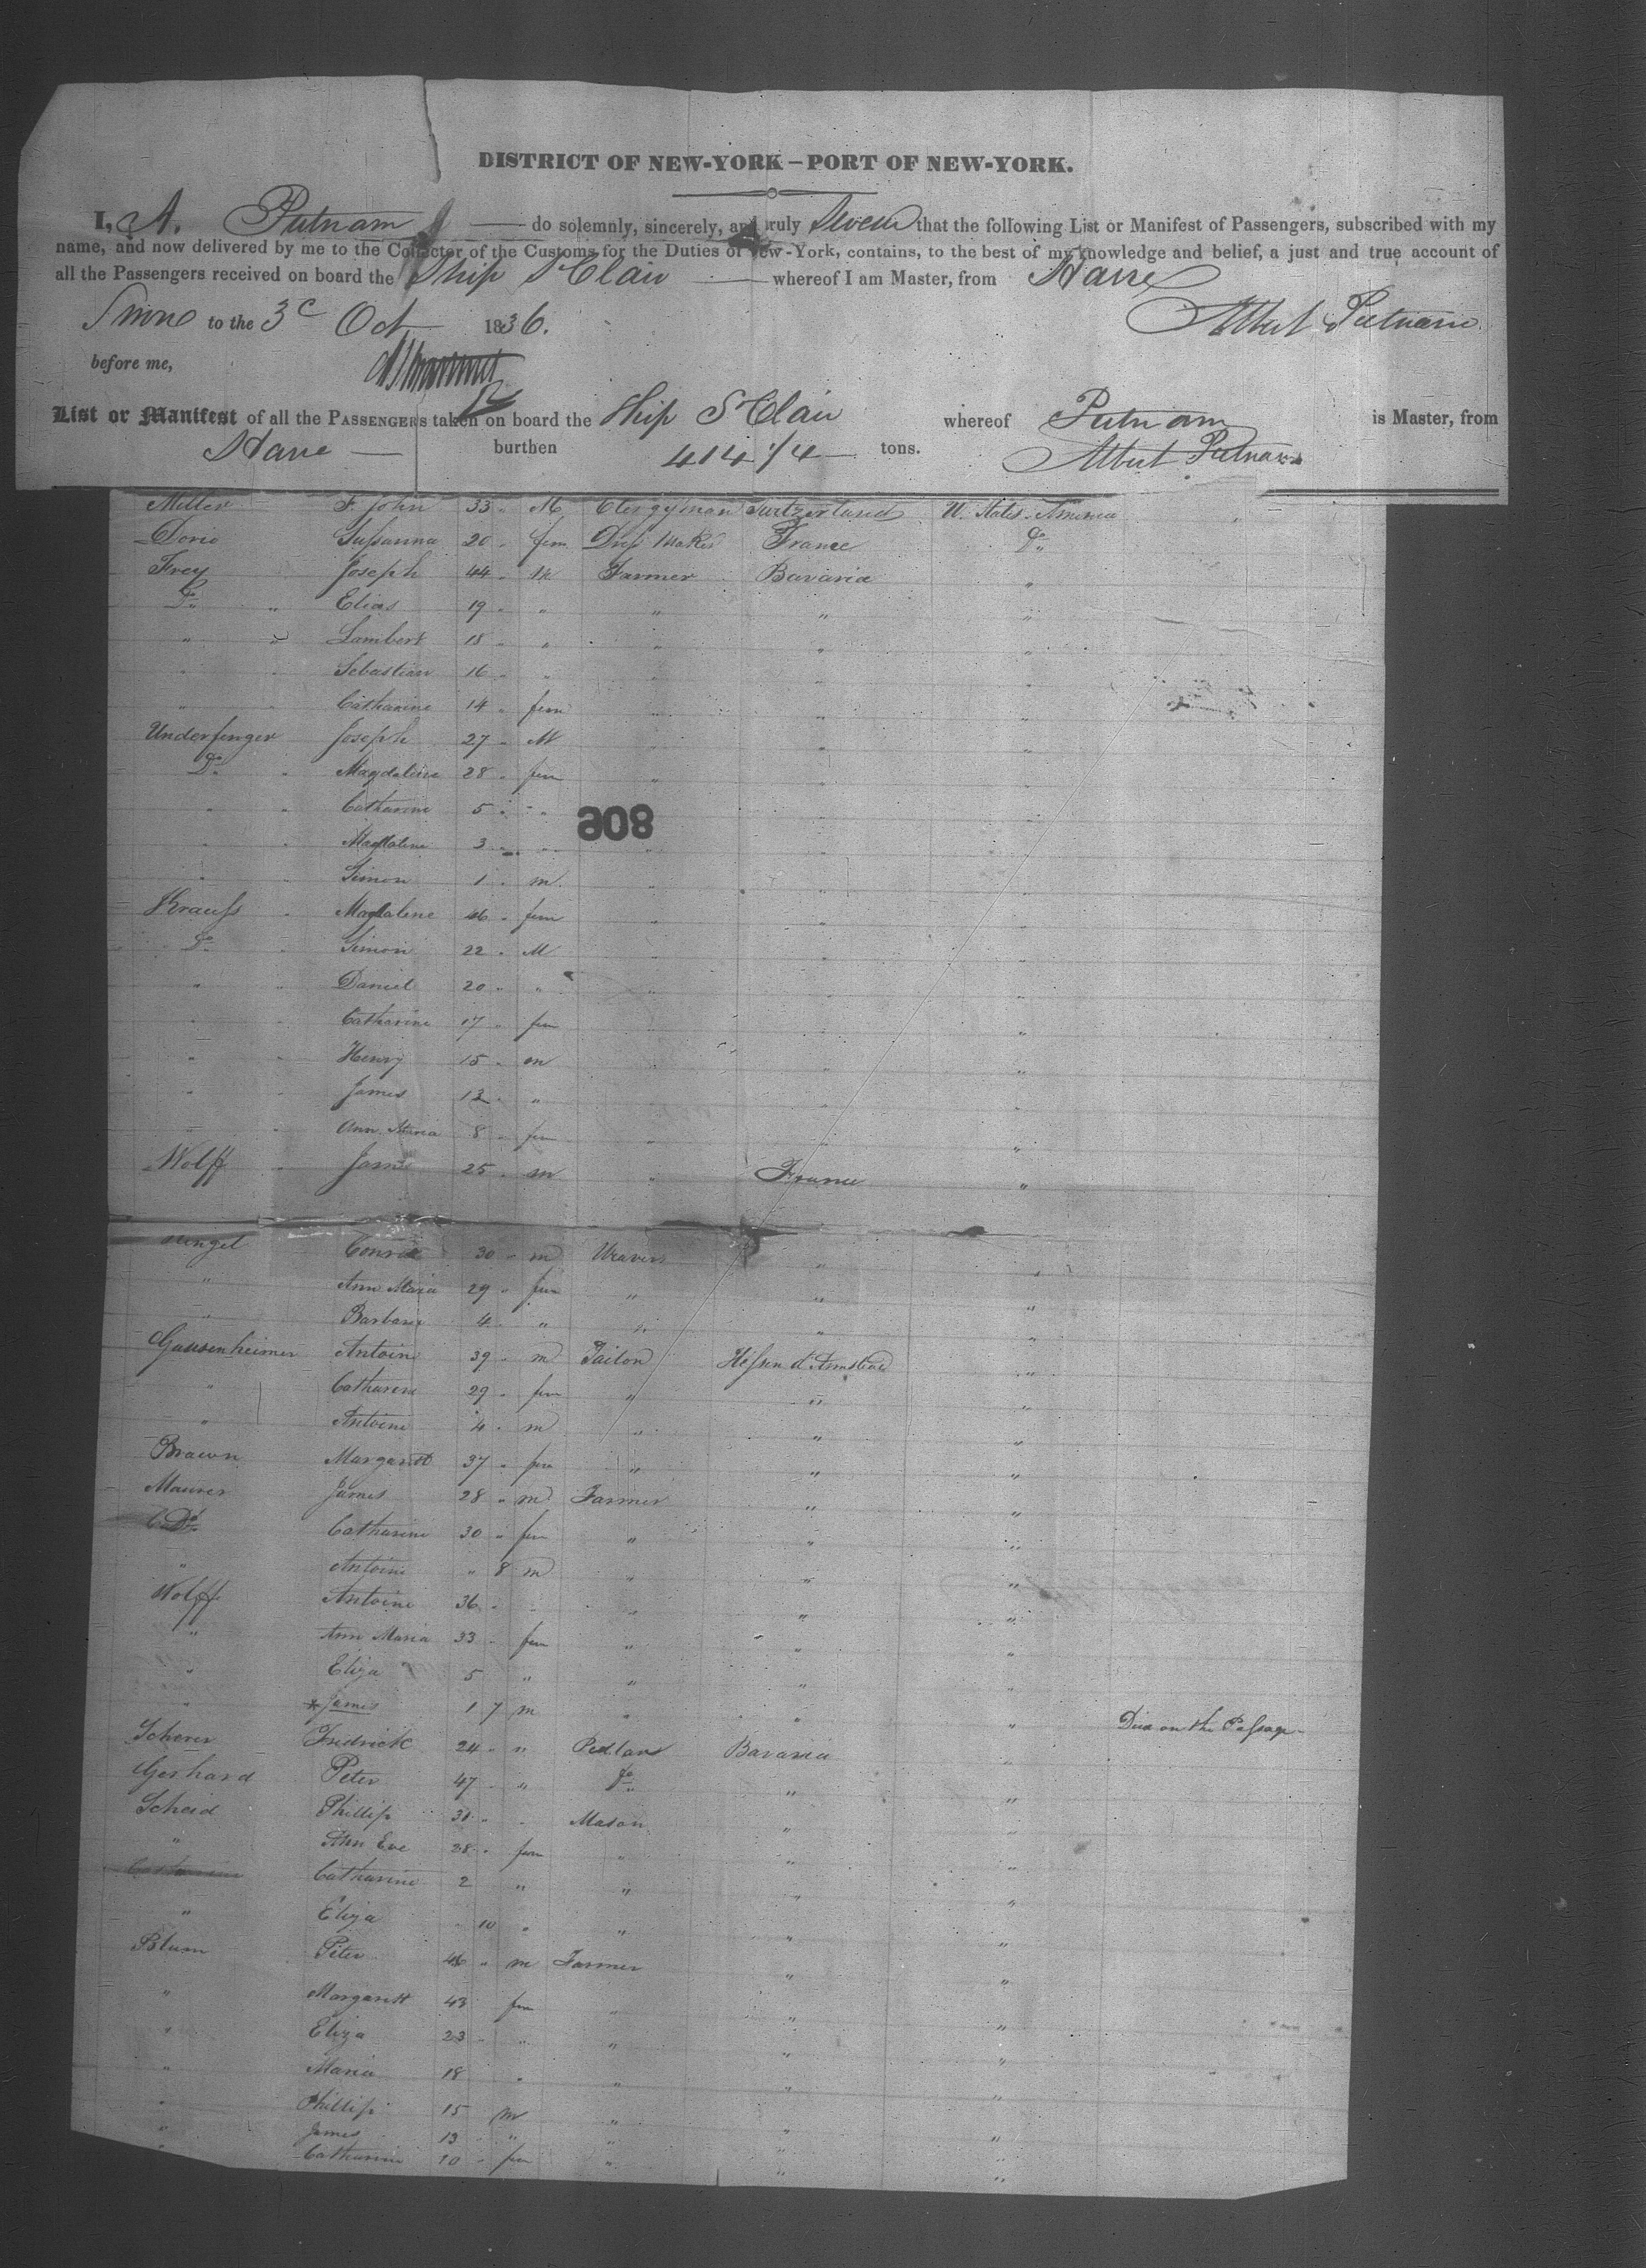 DISTRICT OF NEW-YORK – PORT OF NEW-YORK.
I, A. Putnam do solemnly, sincerely, and truly Swear that the following List or Manifest of Passengers, subscribed with my
name, and now delivered by me to the Collector of the Customs for the Duties of New-York, contains, to the best of my knowledge and belief, a just and true account of
all the Passengers received on board the Ship St Clair whereof I am Master, from Havre
Sworn to the 3d Oct 1836. Albert Putnam
before me,
List or Manifest of all the PASSENGERS taken on board the Ship St Clair whereof Putnam is Master, from
Havre burthen 414 1/4 tons. Albert Putnam
Miller F. John 33 " M Clergyman Switzerland U. States America
Dorio Susanna 20 " fem Drss Maker France Do
Frey Joseph 44 " M Farmer Bavaria "
Do " Elias 19 " " " " "
" " Lambert 18 " " " " "
" " Sebastian 16 " " " " "
" " Catharine 14 " fem " " "
Underfinger Joseph 27 " M " " "
Do " Magdalina 28 " fem " " "
" " Catharine 5 " " " "
808
" " Magdalena 3 " " " " "
" " Simon 1 " m " " "
Krauss " Magdalene 46 " fem " " "
Do " Simon 22 " M " " "
" " Daniel 20 " " " " "
" " Catharine 17 " fem " " "
" " Henry 15 " m " " "
" " James 13 " " " " "
" " Ann Maria 8 " fem " " "
Wolff " James 25 " m " France "
Conrad 30 " m Weaver " "
" Ann Maria 29 " fem " " "
" Barbara 4 " " " " "
Gausenheimer Antoine 39 " m Tailor Hessen d'Armstadt "
" Catharine 29 " fem " " "
" Antoine 4 " m " " "
Brawn Margarett 37 " fem " " "
Maurer James 28 " m Farmer " "
Do Catharine 30 " fem " " "
" Antoine " 8 m " " "
Wolff Antoine 36 " " " " "
" Ann Maria 33 " fem " " "
" Eliza 5 " " " "
" * James 1 7 m " " " Died on the Passage
Scherer Fredrick 24 " " Pedlar Bavaria "
Gerhard Peter 47 " " Do " "
Scheid Phillip 31 " " Mason " "
" Ann Eve 28 " fem " " "
Catharine 2 " " " "
" Eliza 10 " " " "
Blum Peter 46 " m Farmer " "
" Margarett 43 fem " " "
" Eliza 23 " " " " "
" Maria 18 " " " "
" Phillip 15 m " " "
" James 13 " " " " "
" Catharine 10 " fem " " "